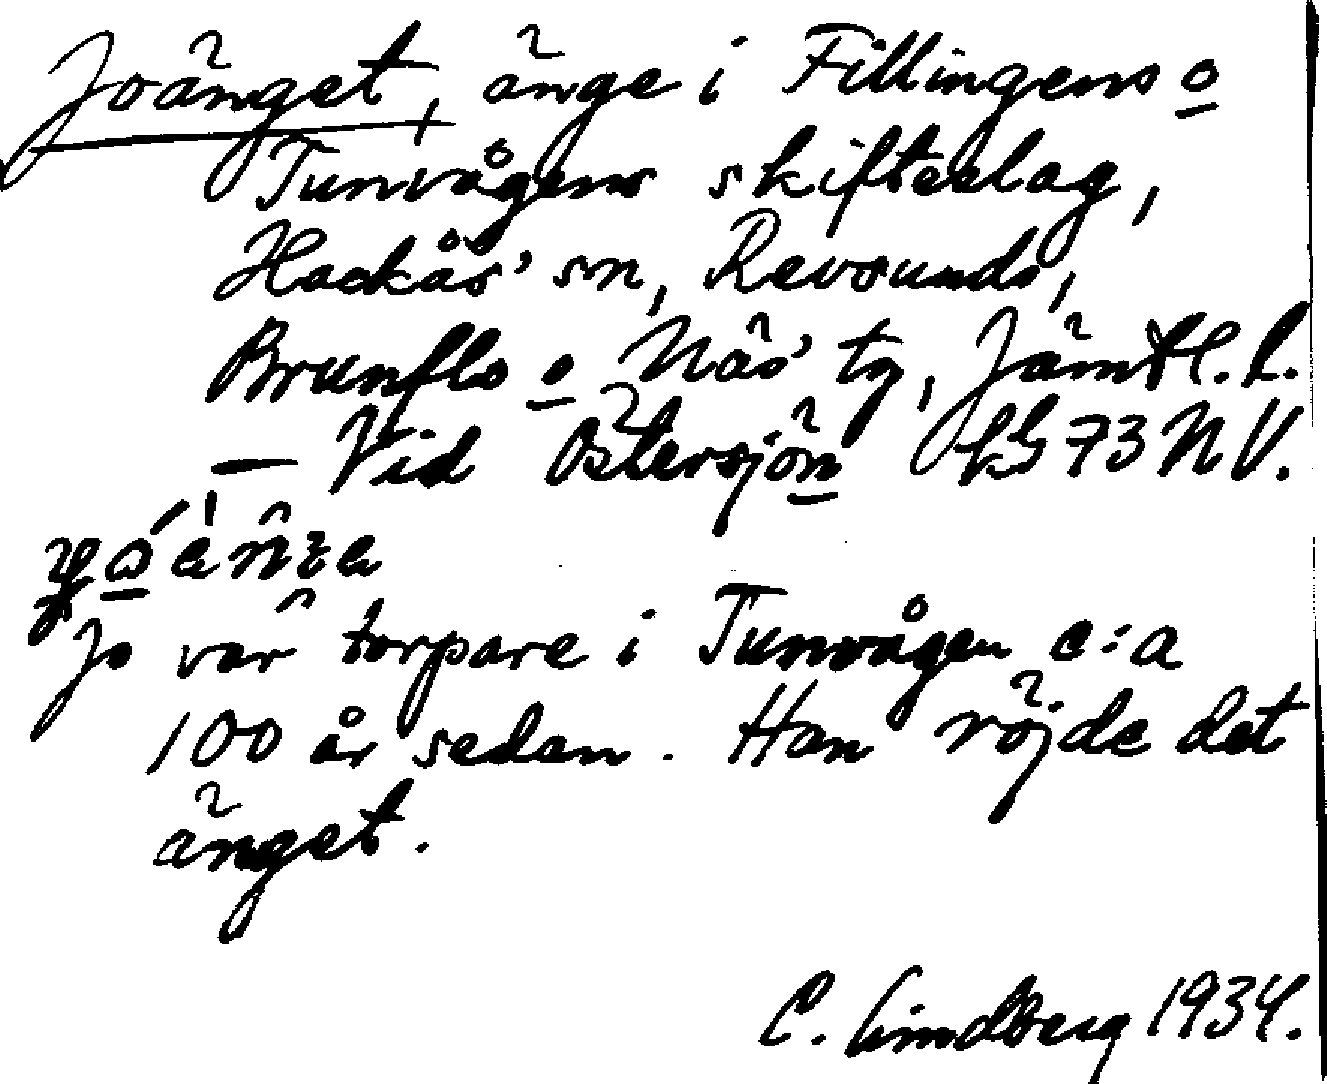 Joänget, änge i Fillingens o
Tunvågens skifteslag,
Hackås' sn, Revsunds,
Brunflo o Näs' tg, Jämtl. l.
— Vid Östersjön LG 73 NV.
Jo var torpare i Tunvågen c:a
100 år sedan. Han röjde det
änget.
C. Lindberg 1934.